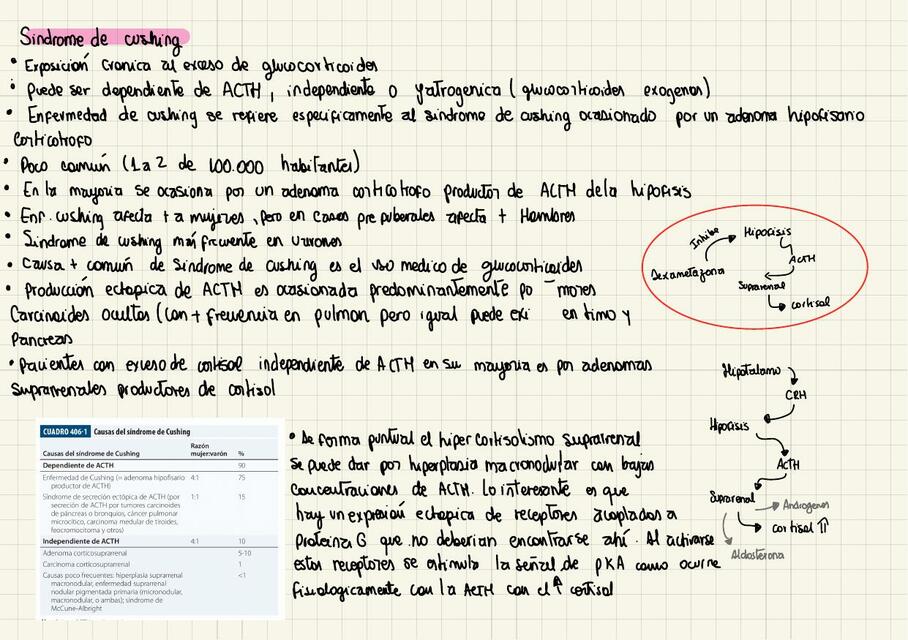 Sindrome de cushing
• Exposición cronica al exceso de glucocorticoides
• Puede ser dependiente de ACTH, independiente o yatrogenica (glucocorticoides exogenos)
• Enfermedad de cushing se refiere especificamente al sindrome de cushing ocasionado por un adenoma hipofisario
corticotrofo
• Poco común (1 a 2 de 100.000 habitantes)
• En la mayoria se ocasiona por un adenoma corticotrofo productor de ACTH de la hipofisis
• Enf. cushing afecta + a mujeres, pero en casos prepuberales afecta + Hombres
• Sindrome de cushing más frecuente en varones
• Causa + común de Sindrome de cushing es el uso medico de glucocorticoides
• Producción ectopica de ACTH es ocasionada predominantemente po mores
Carcinoides ocultos (con + frecuencia en pulmon pero igual puede exi en timo y
Pancreas
• Pacientes con exceso de cortisol independiente de ACTH en su mayoria es por adenomas
suprarrenales productores de cortisol
Inhibe
Hipofisis
ACTH
Dexametazona
Suprarrenal
cortisol
Hipotalamo
CRH
Hipofisis
ACTH
Suprarrenal
Androgenos
cortisol ⇈
Aldosterona
CUADRO 406-1 Causas del síndrome de Cushing
Causas del síndrome de Cushing Razón mujer:varón %
Dependiente de ACTH 90
Enfermedad de Cushing (= adenoma hipofisario 4:1 75
productor de ACTH)
Síndrome de secreción ectópica de ACTH (por 1:1 15
secreción de ACTH por tumores carcinoides
de páncreas o bronquios, cáncer pulmonar
microcítico, carcinoma medular de tiroides,
feocromocitoma y otros)
Independiente de ACTH 4:1 10
Adenoma corticosuprarrenal 5-10
Carcinoma corticosuprarrenal 1
Causas poco frecuentes: hiperplasia suprarrenal <1
macronodular, enfermedad suprarrenal
nodular pigmentada primaria (micronodular,
macronodular, o ambas); síndrome de
McCune-Albright
• De forma puntual el hipercortisolismo suprarrenal
se puede dar por hiperplasia macronodular con bajas
concentraciones de ACTH. Lo interesante es que
hay un expresión ectopica de receptores acoplados a
proteina G que no deberian encontrarse ahí. Al activarse
estos receptores se estimula la señal de PKA como ocurre
fisiologicamente con la ACTH con el ↑ cortisol